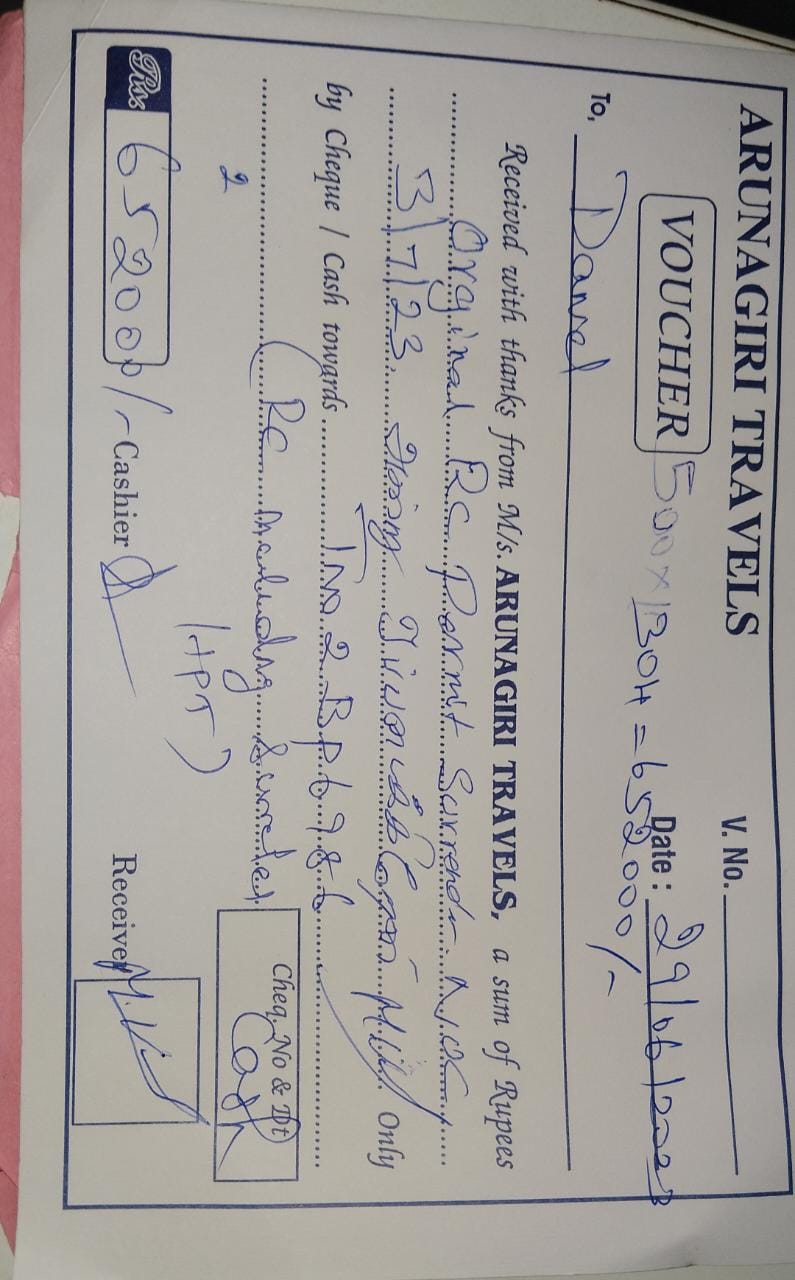 ARUNAGIRI TRAVELS
V. No.
VOUCHER 500 x 1304 = 652000/-
Date : 29/06/2023
To, Daniel
Received with thanks from M/s. ARUNAGIRI TRAVELS, a sum of Rupees
Orginal RC Permit Surrender NOC
3/7/23 Only
by Cheque / Cash towards TN 2 BP 6986
(RC including Surrender
2
HPT)
Cheq. No & Dt
Cash
Rs. 652000/- Cashier
Receiver